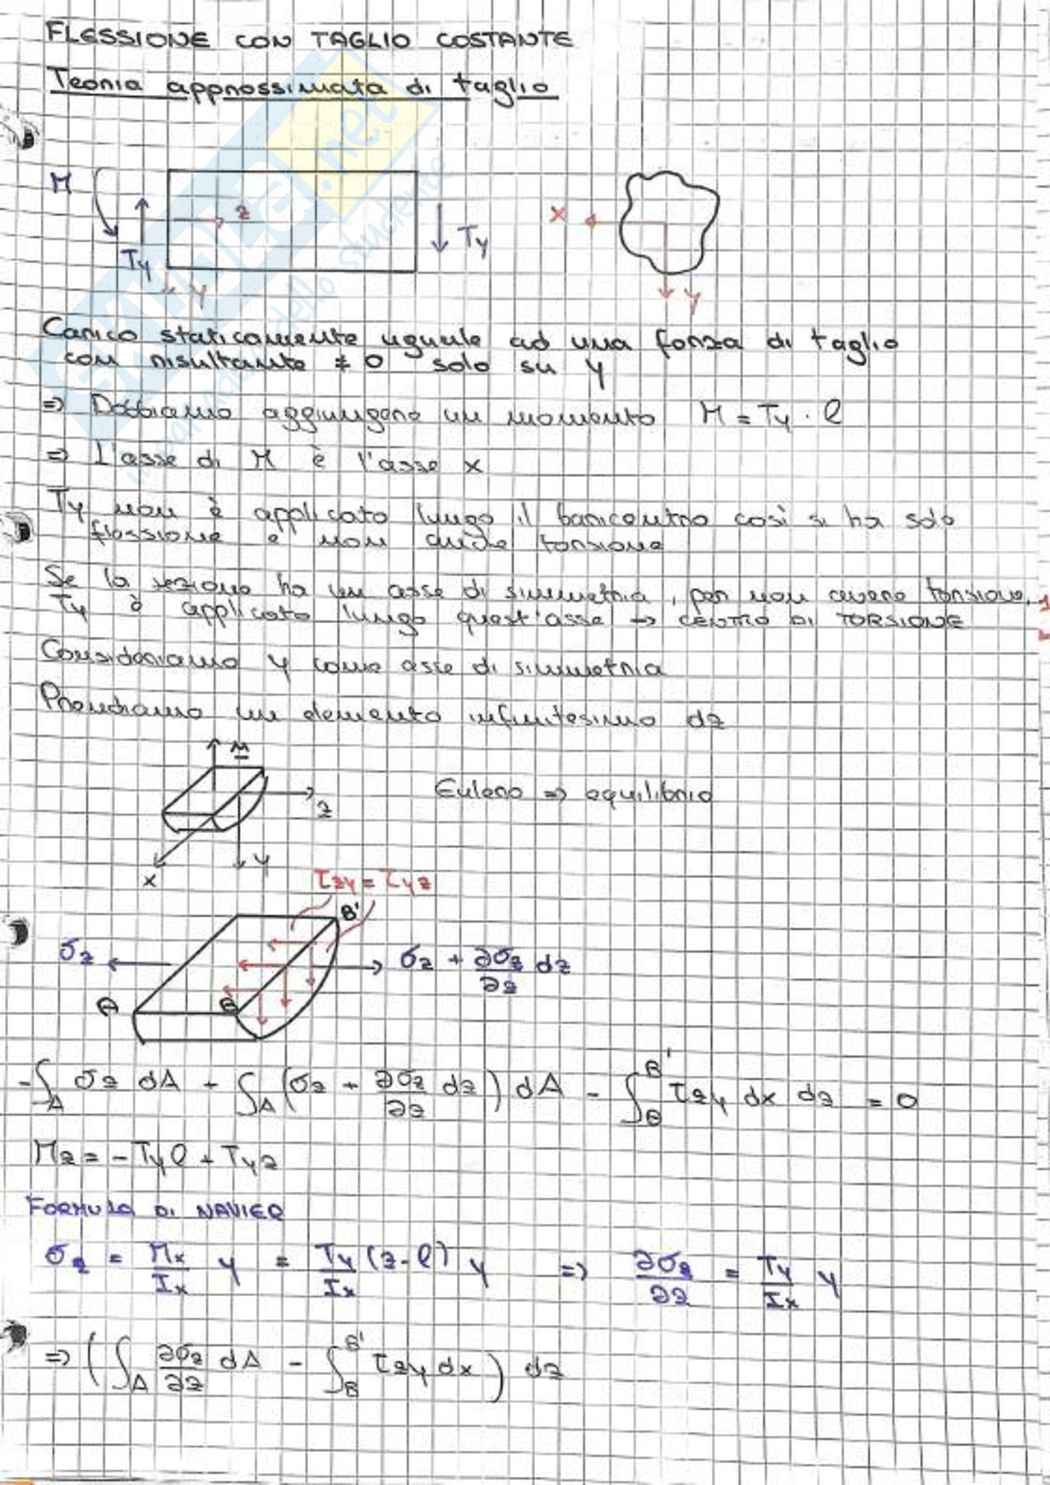 FLESSIONE CON TAGLIO COSTANTE
Teoria approssimata di taglio
M
z
x
Ty
Ty
y
y
Carico staticamente uguale ad una forza di taglio
con risultante ≠ 0 solo su y
⇒ Dobbiamo aggiungere un momento M = Ty · l
⇒ L'asse di M è l'asse x
Ty non è applicato lungo il baricentro così si ha solo
flessione e non anche torsione
Se la sezione ha un asse di simmetria, per non avere torsione,
Ty è applicato lungo quest'asse → CENTRO DI TORSIONE
Consideriamo y come asse di simmetria
Prendiamo un elemento infinitesimo dz
M
Eulero ⇒ equilibrio
z
y
x
τzy = τyz
B'
σz
σz + ∂σz/∂z dz
A
B
-∫A σz dA + ∫A (σz + ∂σz/∂z dz) dA - ∫B^B' τzy dx dz = 0
Mz = -Ty l + Ty z
FORMULA DI NAVIER
σz = Mx/Ix y = Ty/Ix (z-l) y ⇒ ∂σz/∂z = Ty/Ix y
⇒ (∫A ∂σz/∂z dA - ∫B^B' τzy dx) dz